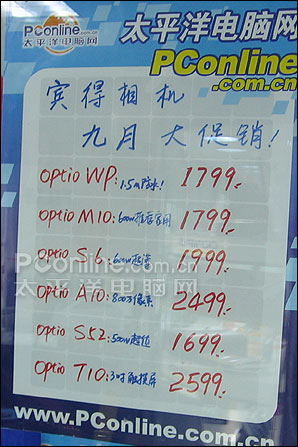 PConline
.com.cn
太平洋电脑网
太平洋电脑网
PConline
.com.cn
宾得相机
九月大促销!
Optio WP: 1.5m防水! 1799.-
Optio M10: 600w推荐家用 1799.-
Optio S6: 600w超薄 1999.-
PConline.com.cn
太平洋电脑网
Optio A10: 800万像素 2499.-
Optio S52: 500w超值 1699.-
Optio T10: 3吋触摸屏 2599.-
www.PConline.com.cn